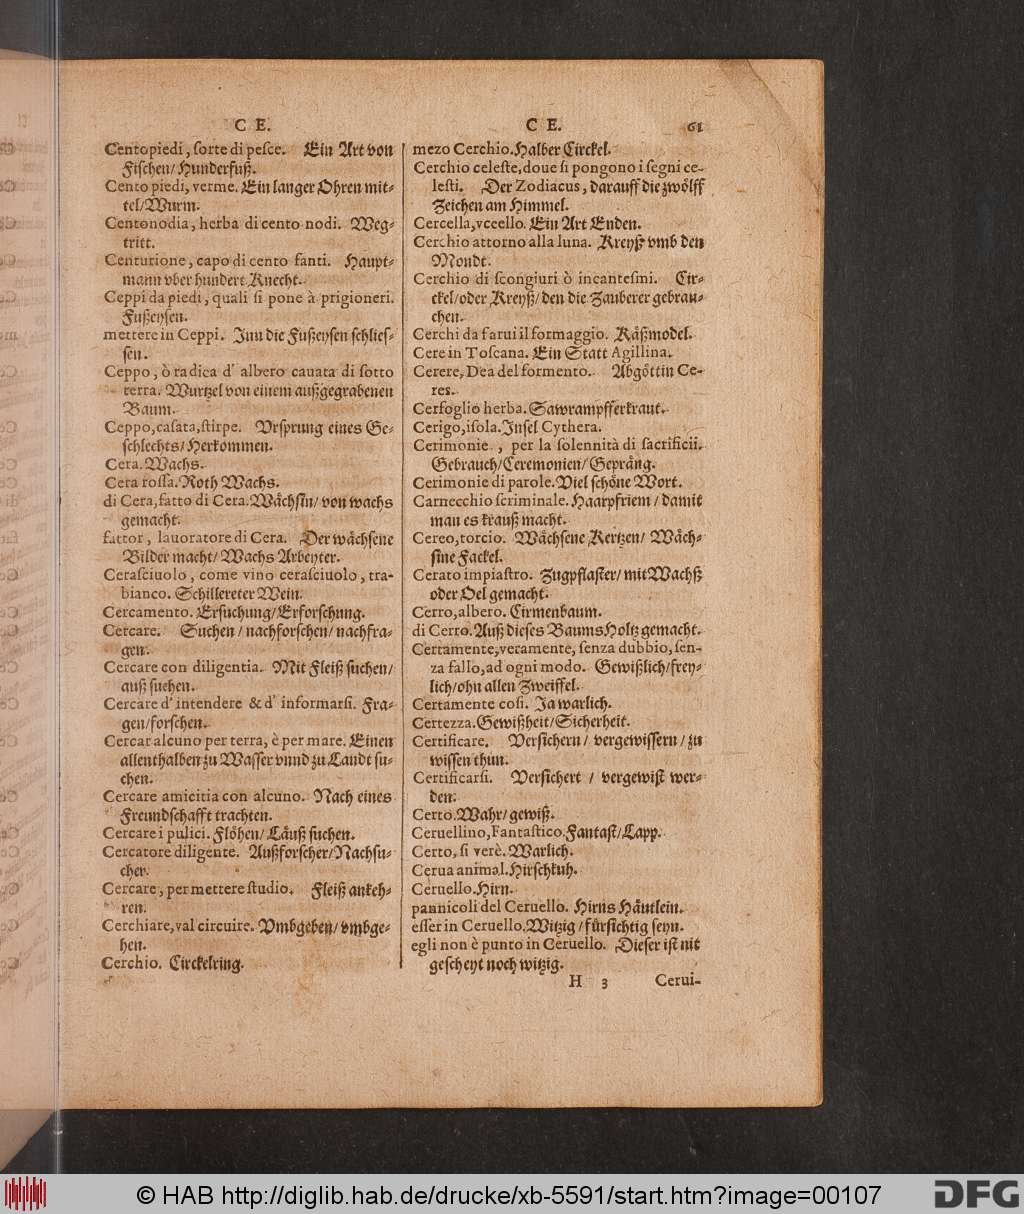 C E.
Centopiedi, ſorte di peſce. Ein Art von
Fiſchen/ Hunderfuß.
Cento piedi, verme. Ein langer Ohren mit-
tel/Wurm.
Centonodia, herba di cento nodi. Weg-
tritt.
Centurione, capo di cento fanti. Haupt-
mann vber hundert Knecht.
Ceppi da piedi, quali ſi pone à prigioneri.
Fußeyſen.
mettere in Ceppi. Inn die Fußeyſen ſchlieſ-
ſen.
Ceppo, ò radica d' albero cauata di ſotto
terra. Wurtzel von einem außgegrabenen
Baum.
Ceppo, caſata, ſtirpe. Vrſprung eines Ge-
ſchlechts/ Herkommen.
Cera. Wachs.
Cera roſſa. Roth Wachs.
di Cera, fatto di Cera. Waͤchſin/ von wachs
gemacht.
fattor, lauoratore di Cera. Der waͤchſene
Bilder macht/ Wachs Arbeyter.
Ceraſciuolo, come vino ceraſciuolo, tra-
bianco. Schillereter Wein.
Cercamento. Erſuchung/ Erforſchung.
Cercare. Suchen/ nachforſchen/ nachfra-
gen.
Cercare con diligentia. Mit Fleiß ſuchen/
auß ſuchen.
Cercare d' intendere & d' informarſi. Fra-
gen/forſchen.
Cercar alcuno per terra, è per mare. Einen
allenthalben zu Waſſer vnnd zu Landt ſu-
chen.
Cercare amicitia con alcuno. Nach eines
Freundſchafft trachten.
Cercare i pulici. Floͤhen/ Laͤuß ſuchen.
Cercatore diligente. Außforſcher/Nachſu-
cher.
Cercare, per mettere ſtudio. Fleiß ankeh-
ren.
Cerchiare, val circuire. Vmbgeben/ vmbge-
hen.
Cerchio. Circkelring.
C E. 61
mezo Cerchio. Halber Circkel.
Cerchio celeſte, doue ſi pongono i ſegni ce-
leſti. Der Zodiacus, darauff die zwoͤlff
Zeichen am Himmel.
Cercella, vccello. Ein Art Enden.
Cerchio attorno alla luna. Kreyß vmb den
Mondt.
Cerchio di ſcongiuri ò incanteſini. Cir-
ckel/oder Kreyß/ den die Zauberer gebrau-
chen.
Cerchi da farui il formaggio. Kaͤßmodel.
Cere in Toſcana. Ein Statt Agillina.
Cerere, Dea del formento. Abgoͤttin Ce-
res.
Cerfoglio herba. Sawrampfferkraut.
Cerigo, iſola. Inſel Cythera.
Cerimonie, per la ſolennità di ſacrificii.
Gebrauch/Ceremonien/ Gepraͤng.
Cerimonie di parole. Viel ſchoͤne Wort.
Carnecchio ſcriminale. Haarpfriem/ damit
man es krauß macht.
Cereo, torcio. Waͤchſene Kertzen/ Waͤch-
ſine Fackel.
Cerato impiaſtro. Zugpflaſter/ mit Wachß
oder Oel gemacht.
Cerro, albero. Cirmenbaum.
di Cerro. Auß dieſes Baums Holtz gemacht.
Certamente, veramente, ſenza dubbio, ſen-
za fallo, ad ogni modo. Gewißlich/ frey-
lich/ohn allen Zweiffel.
Certamente coſi. Ja warlich.
Certezza. Gewißheit/Sicherheit.
Certificare. Verſichern/ vergewiſſern/ zu
wiſſen thun.
Certificarſi. Verſichert/ vergewiſt wer-
den.
Certo. Wahr/ gewiß.
Ceruellino, Fantaſtico. Fantaſt/Lapp.
Certo, ſi verè. Warlich.
Cerua animal. Hirſchkuh.
Ceruello. Hirn.
pannicoli del Ceruello. Hirns Haͤutlein.
eſſer in Ceruello. Witzig/ fuͤrſichtig ſeyn.
egli non è punto in Ceruello. Dieſer iſt nit
geſcheyt noch witzig.
H 3 Cerui-
© HAB http://diglib.hab.de/drucke/xb-5591/start.htm?image=00107
DFG